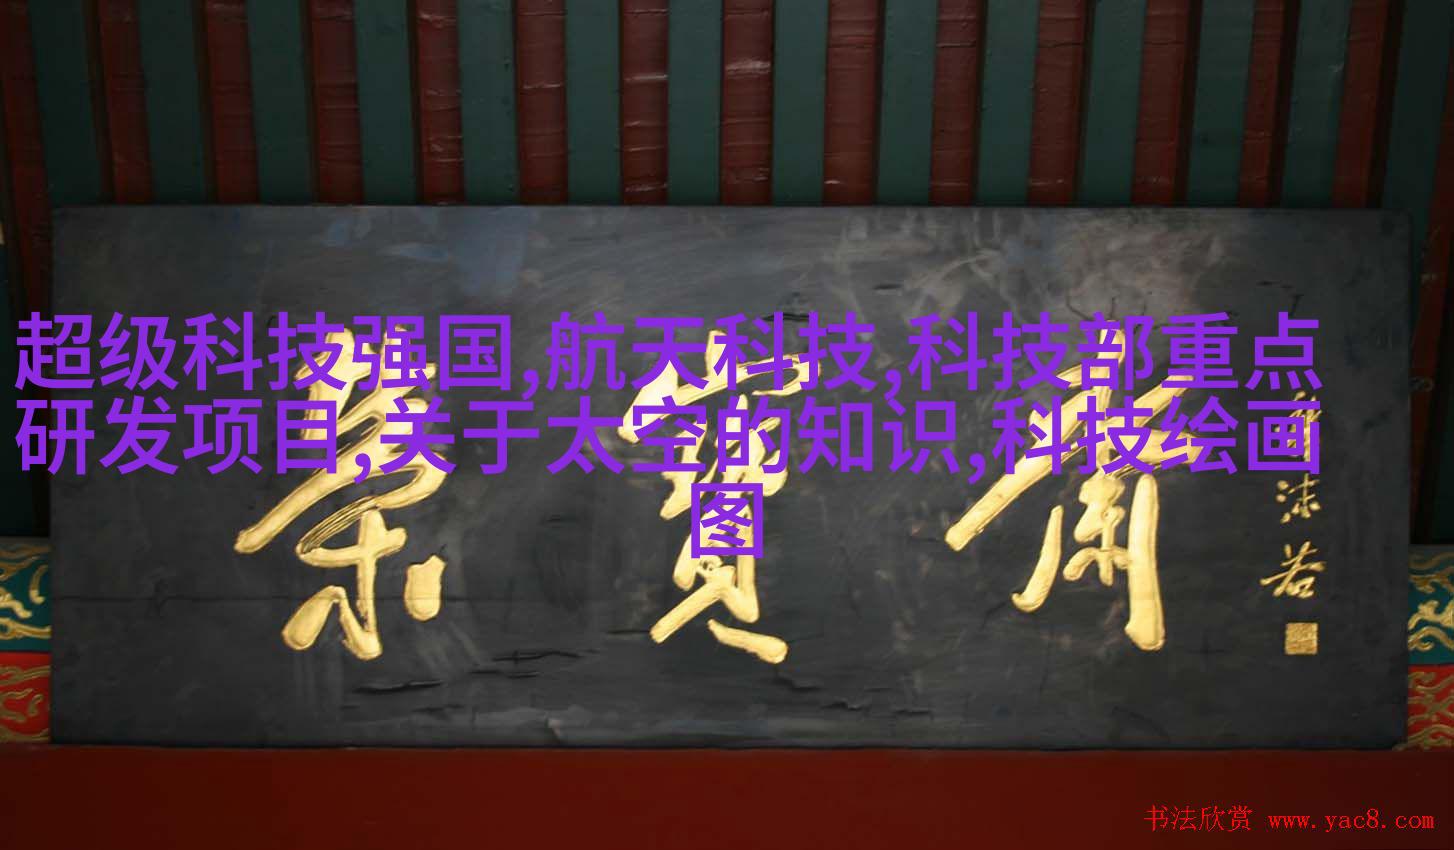 超级科技强国,航天科技,科技部重点
研发项目,关于太空的知识,科技绘画
图
榮寶齋
郭沫若
书法欣赏 www.yac8.com